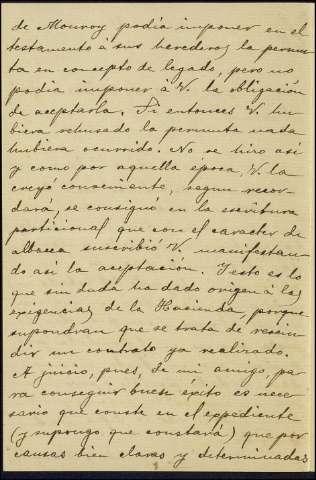 de Monroy podía imponer en el
testamento á sus herederos la permu-
ta en concepto de legado, pero no
podía imponer á V. la obligación
de aceptarla. Si entonces V. hu-
biera rehusado la permuta nada
hubiera ocurrido. No se hizo así
y como por aquella época, V. la
creyó conveniente, segun recor-
dará, se consignó en la escritura
particional que con el caracter de
albacea suscribió V. manifestan-
do así la aceptación. Y esto es lo
que sin duda ha dado origen á las
exigencias de la Hacienda, porque
supondran que se trata de rescin-
dir un contrato ya realizado.
A juicio, pues, de mi amigo, pa-
ra conseguir buen éxito es nece-
sario que conste en el expediente
(y supongo que constará) que por
causas bien claras y determinadas